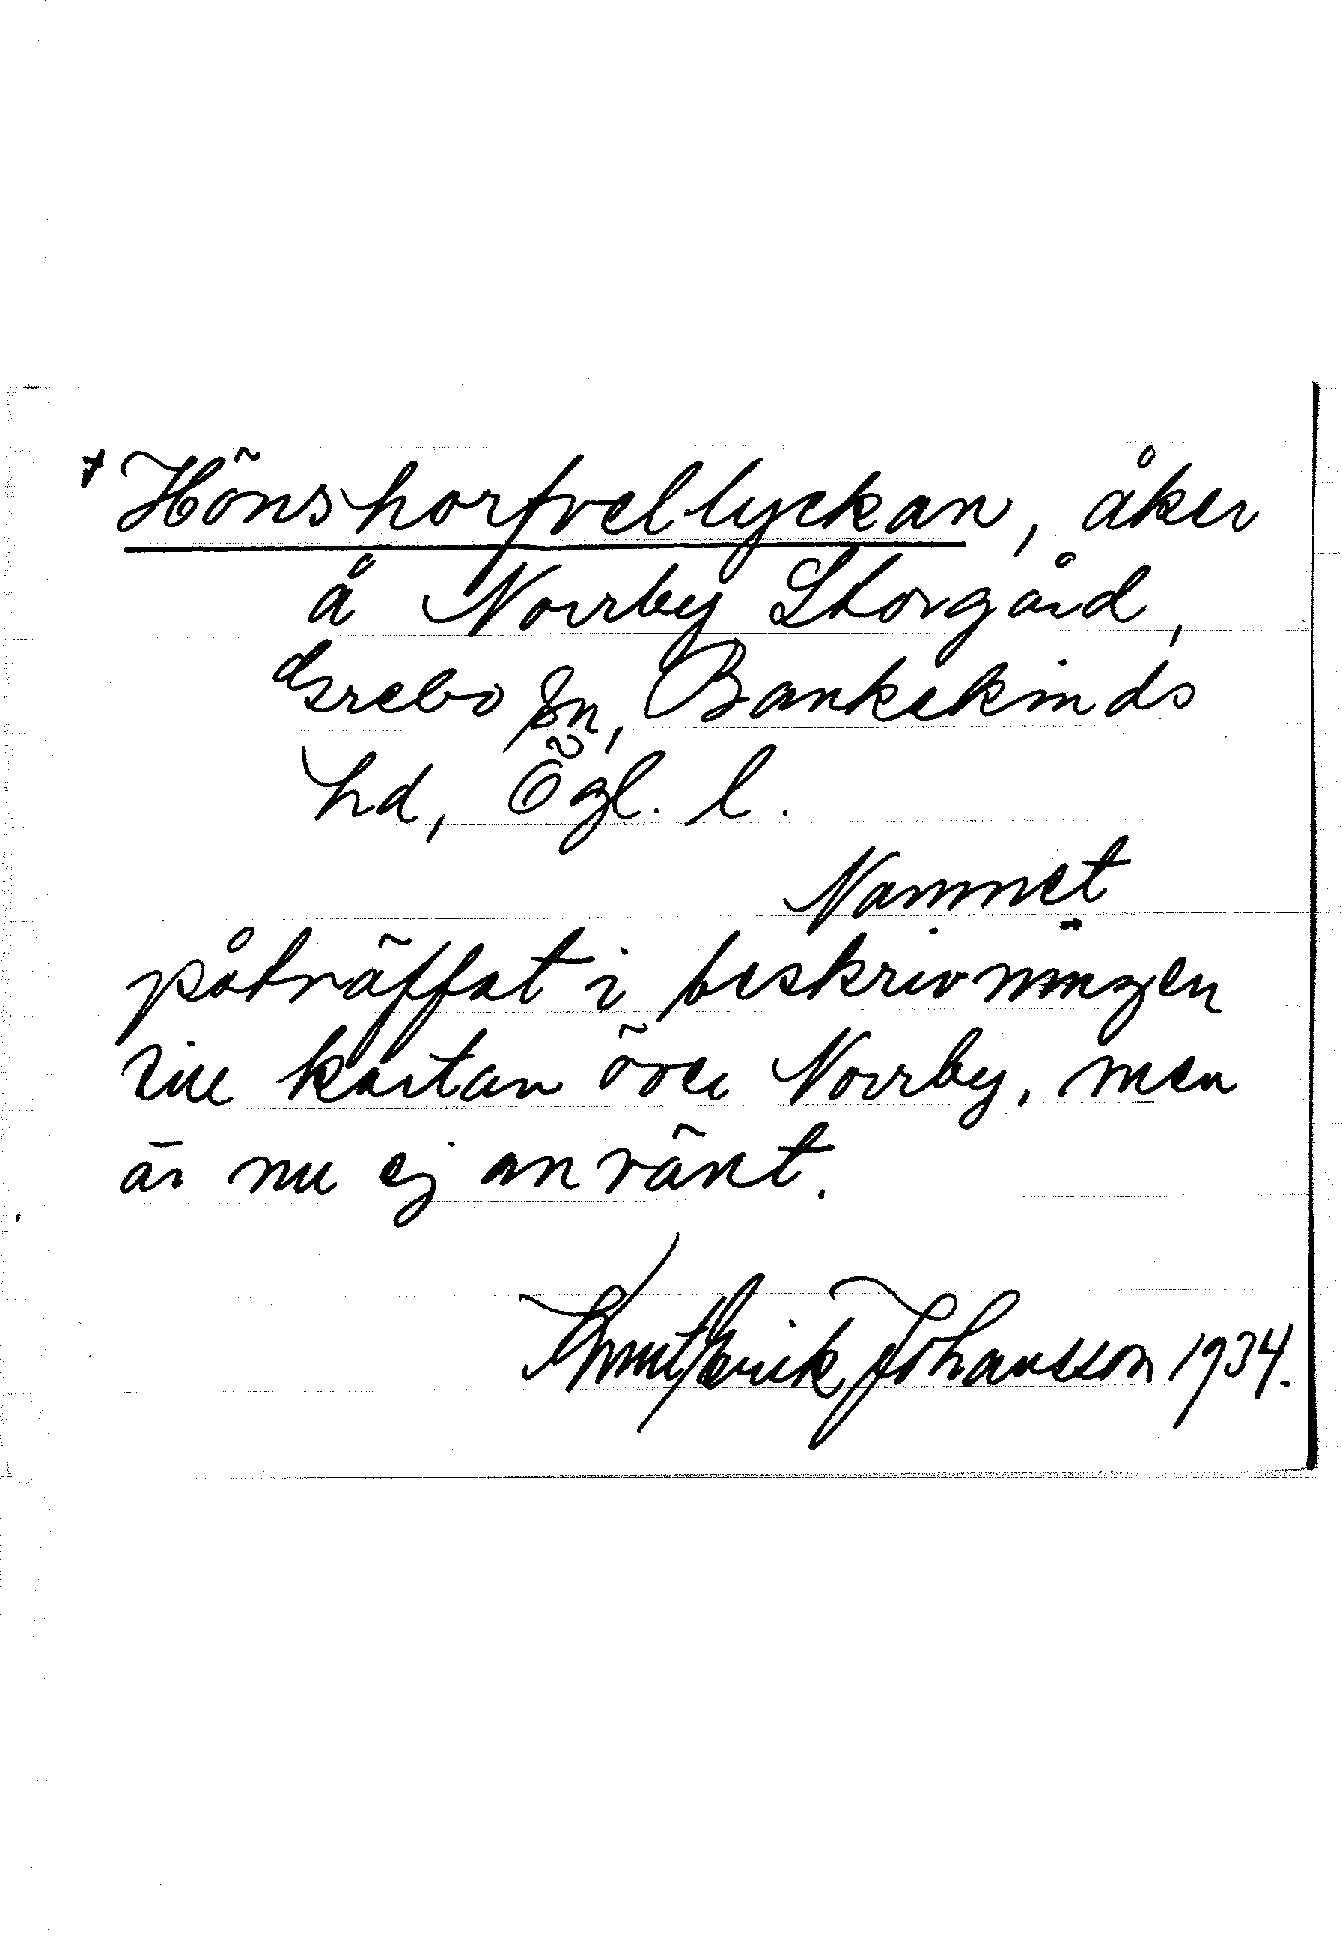 + Hönshorfvellyckan, åker
å Norrby Storgård,
Grebo sn, Bankekinds
hd, Ögl. l.
Namnet
påträffat i beskrivningen
till kartan över Norrby, men
är nu ej använt.
Knut Erik Johansson 1934.